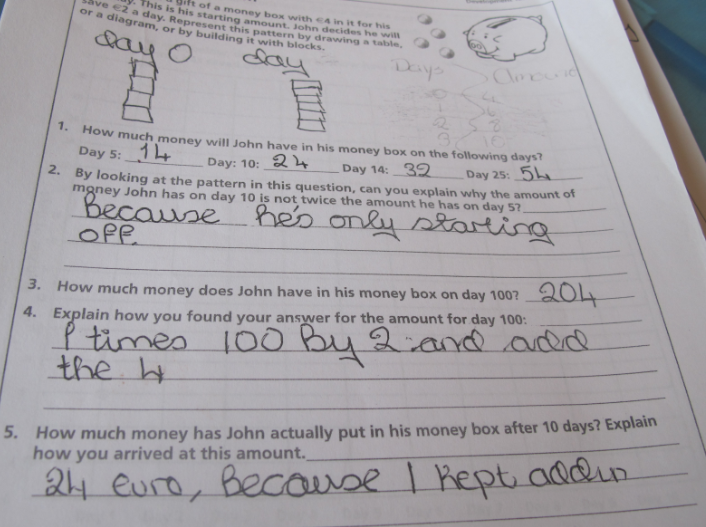 gift of a money box with €4 in it for his
This is his starting amount. John decides he will
save €2 a day. Represent this pattern by drawing a table,
or a diagram, or by building it with blocks.
day 0 day
Days Amount
1. How much money will John have in his money box on the following days?
Day 5: 14 Day: 10: 24 Day 14: 32 Day 25: 54
2. By looking at the pattern in this question, can you explain why the amount of
money John has on day 10 is not twice the amount he has on day 5?
Because he's only starting
off.
3. How much money does John have in his money box on day 100? 204
4. Explain how you found your answer for the amount for day 100:
I times 100 By 2 and add
the 4
5. How much money has John actually put in his money box after 10 days? Explain
how you arrived at this amount.
24 euro, Because I kept addin